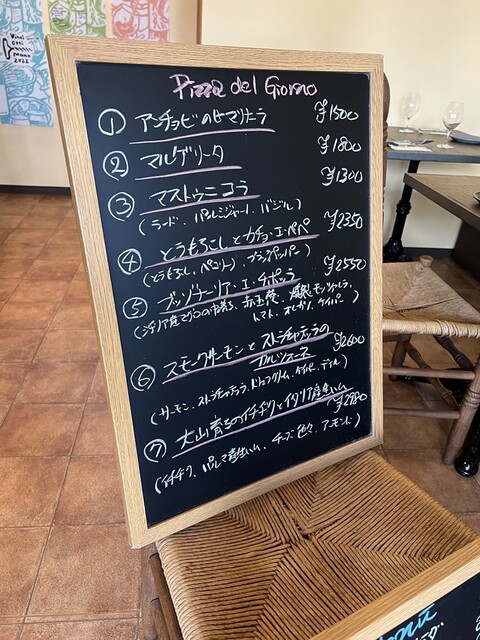 Pizza del Giorno
① アンチョビのマリナーラ ¥1500
② マルゲリータ ¥1800
③ マストゥニコラ ¥1300
(ラード、パルミジャーノ、バジル)
④ とうもろこしとカチョ・エ・ペペ ¥2350
(とうもろこし、ペコリーノ、ブラックペッパー)
⑤ プッタネーリア・エ・チポッラ ¥2550
(シチリア産マグロの 赤玉葱、燻製モッツァレラ、
トマト、オレガノ、ケイパー)
⑥ スモークサーモンとストラチャテッラの ¥2600
(サーモン、ストラチャテッラ、ケイパー、ディル)
⑦ 大山育ちのイチヂクとイタリア産生ハム ¥2980
(イチヂク、パルマ産生ハム、チーズ色々、アーモンド)